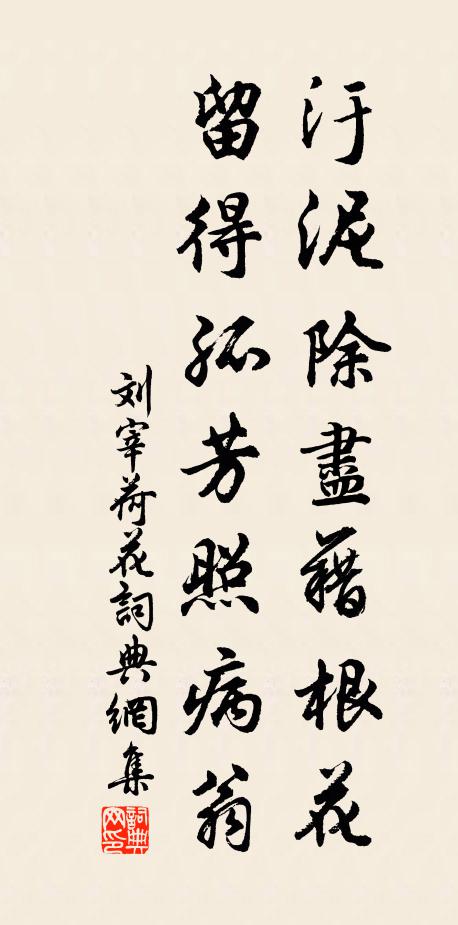 汙泥除盡藕根花
留得孤芳照病翁
刘宰荷花詞典網集
詞典网印